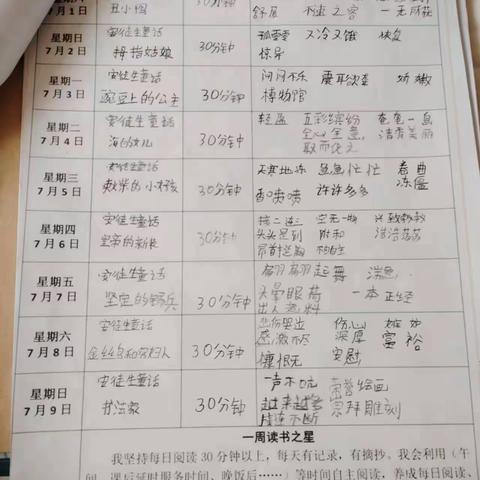 7月1日 丑小鸭 30分钟 舒展 不速之客 一无所获
星期日 安徒生童话 孤零零 又冷又饿 恢复
7月2日 拇指姑娘 30分钟 惊异
星期一 安徒生童话 闷闷不乐 震耳欲聋 娇嫩
7月3日 豌豆上的公主 30分钟 博物馆
星期二 安徒生童话 轻盈 五彩缤纷 奄奄一息
7月4日 海的女儿 30分钟 全心全意 清秀美丽
取而代之
星期三 安徒生童话 天寒地冻 急急忙忙 卷曲
7月5日 卖火柴的小女孩 30分钟 香喷喷 许许多多 冻僵
星期四 安徒生童话 接二连三 空无一物 兴致勃勃
7月6日 皇帝的新装 30分钟 头头是到 附和 浩浩荡荡
昂首挺胸
星期五 安徒生童话 翩翩起舞
7月7日 坚定的锡兵 30分钟 头晕眼荷 一本正经
出人意料
星期六 安徒生童话 悲伤哭泣 伤心 嫉妒
7月8日 金丝鸟和穷妇人 30分钟 感激不尽 深厚 富裕
懊恨无 安慰
星期日 安徒生童话 一声不吭 荣誉 绘画
7月9日 书法家 30分钟 越来越多 崇拜 雕刻
接连不断
一周读书之星
我坚持每日阅读30分钟以上，每天有记录，有摘抄。我会利用（午
间、课后延时服务时间、晚饭后……）等时间自主阅读，养成每日阅读、